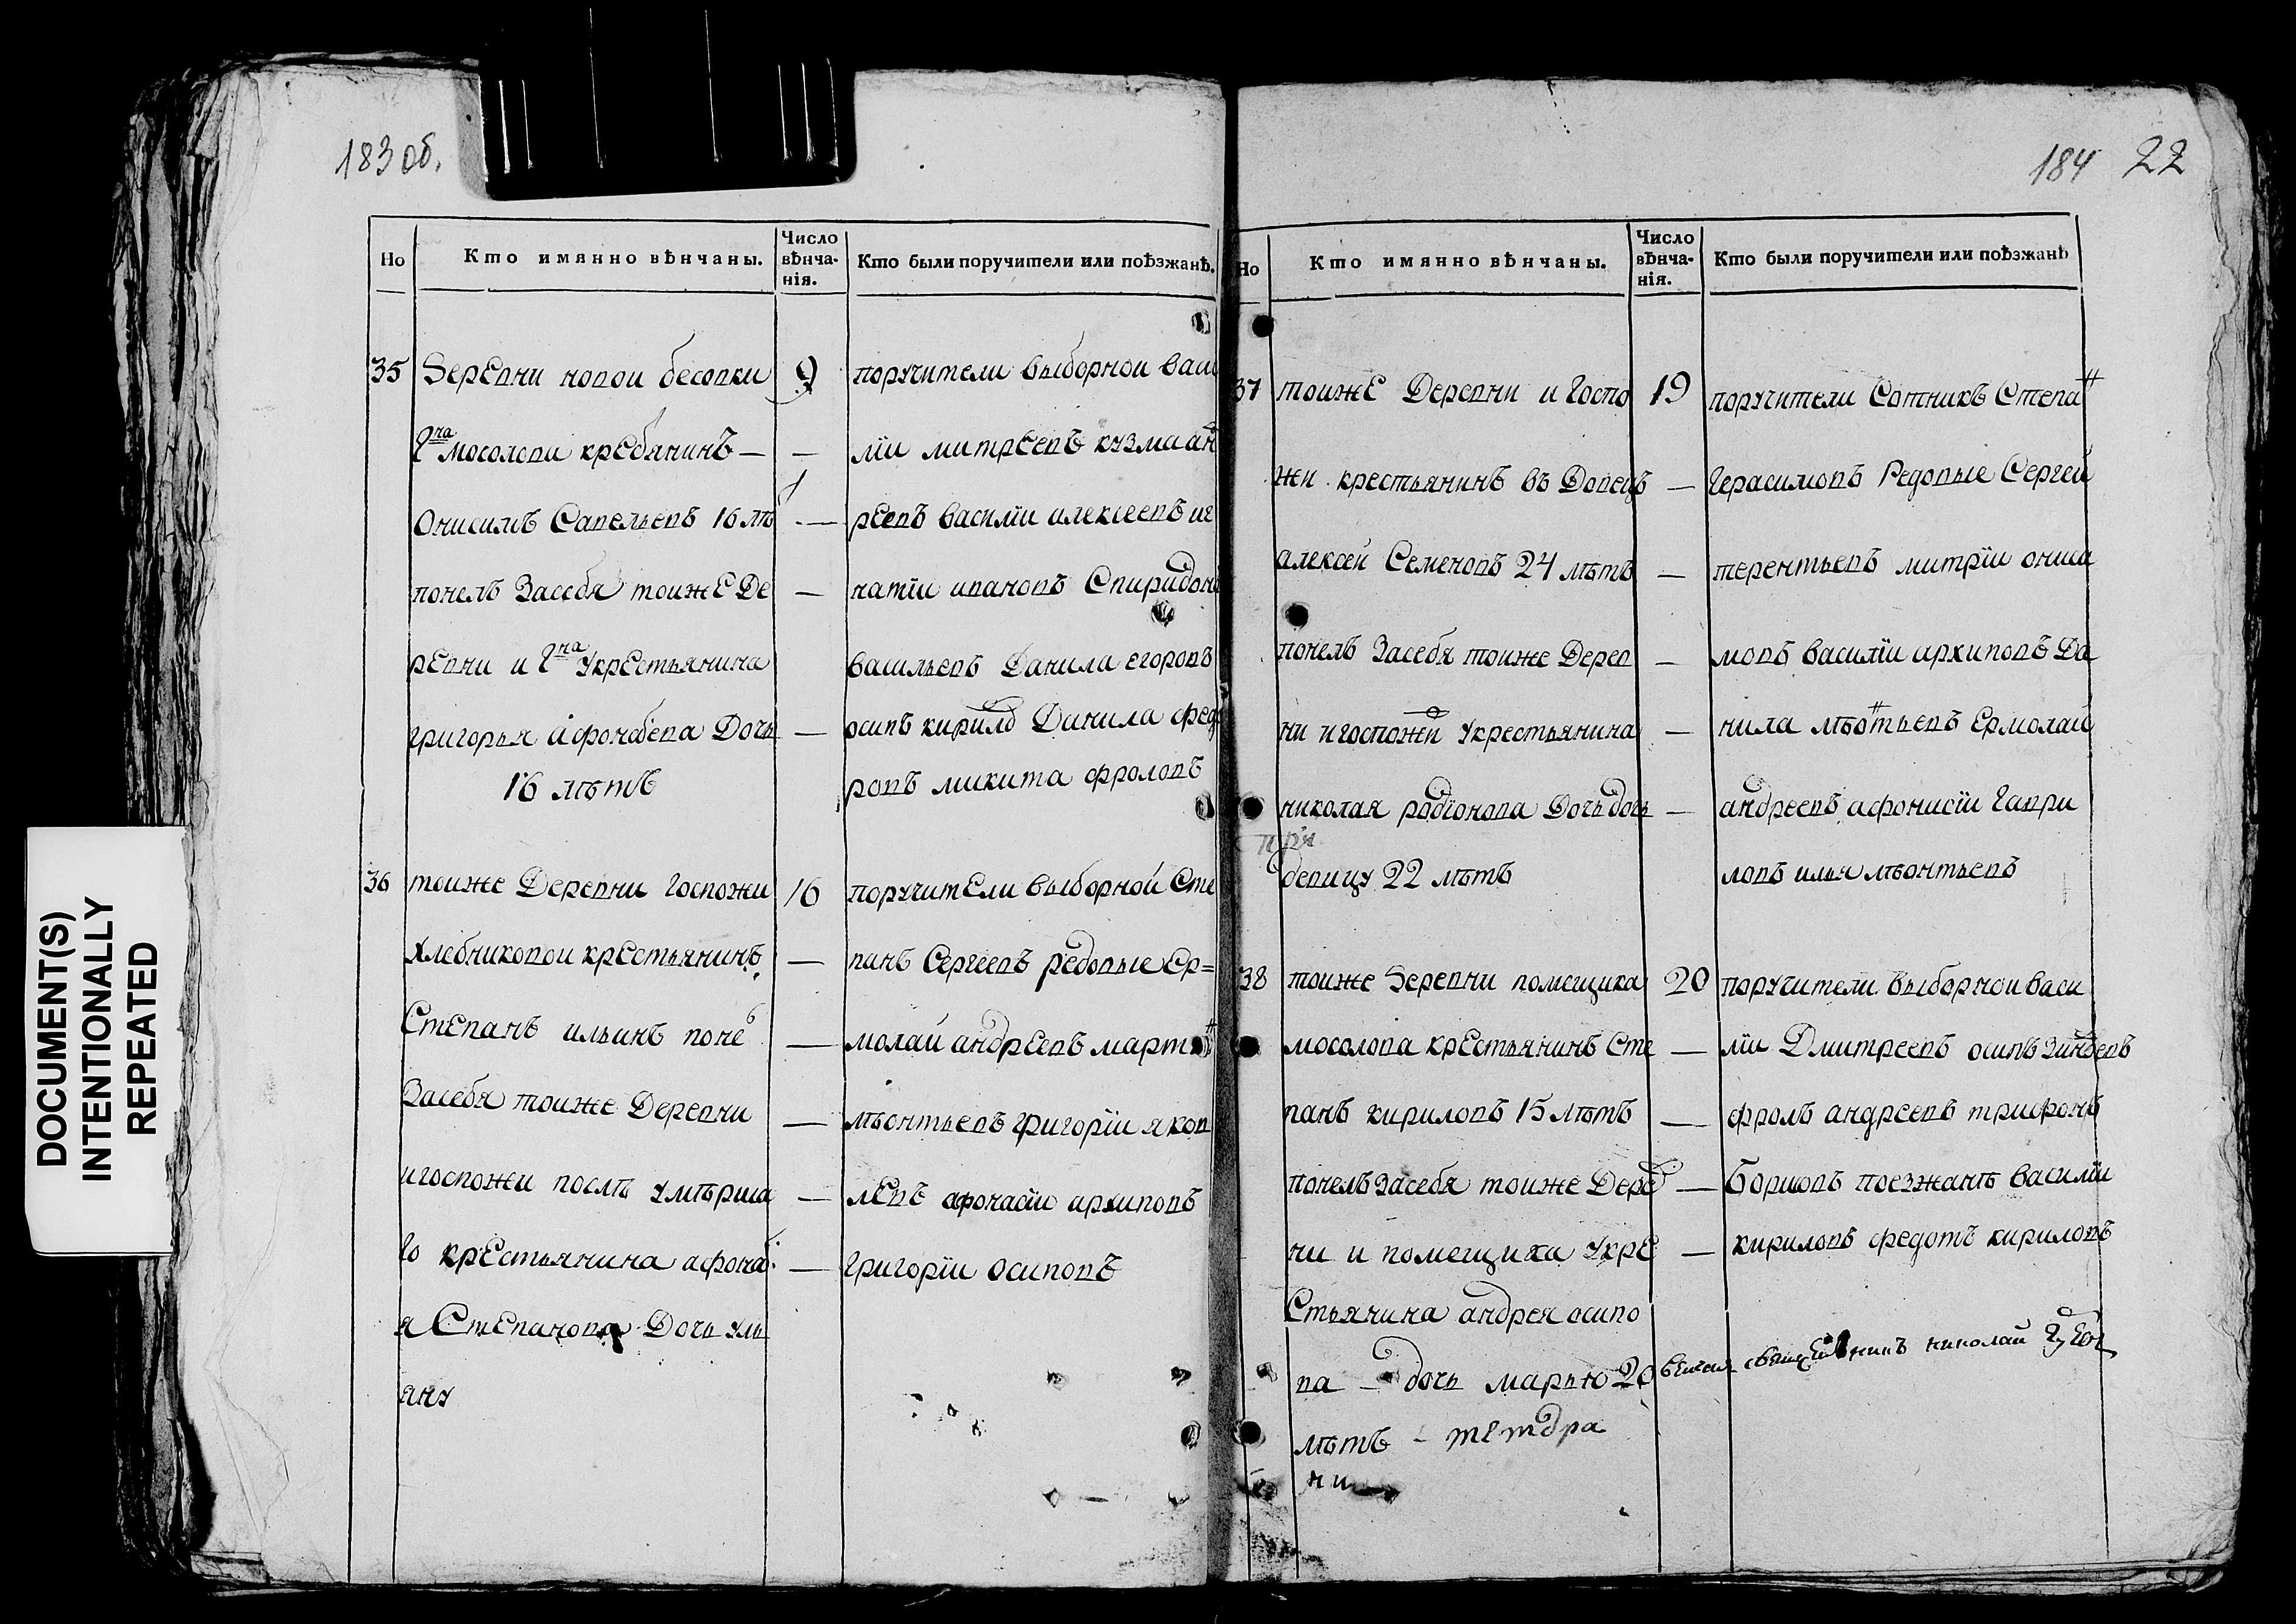 183 об.
184 22
Но
Кто имянно вѣнчаны.
Число вѣнча-нія.
Кто были поручители или поѣзжанѣ.
35 Деревни новои бесовки
гна мосолови кребянинъ —
Онисимъ Савельевъ 16 лѣ
понелъ Засебя тоиже Де
ревни и гна Укрестьянина
григорья афонабева Дочь
16 лѣтъ
9
поручители выборнои васи
лїи митреевъ кузма ан
реевъ василїи алексеевъ иг
натїи ивановъ Спиридонъ
васильевъ Данила егоровъ
осипъ кирилъ Данила федо
ровъ микита фроловъ
36 тоиже Деревни госпожи
Хлебниковои крестьянинъ
Степанъ ильинъ поне
Засебя тоиже Деревни
игоспожи послѣ умѣрша
го крестьянина афона
я Степанова Дочь уль
яну
16
поручители выборной Сте
панъ Сергеевъ редовые Ер=
молаи андреевъ март
лѣонтьевъ григорїи яков
левъ афонасїи архиповъ
григорїи осиповъ
Но
Кто имянно вѣнчаны.
Число вѣнча-нія.
Кто были поручители или поѣзжанѣ
37 тоиже Деревни и госпо
жи крестьянинъ въ Довецъ
алексеи Семеновъ 24 лѣтъ
понелъ Засебя тоиже Дерев
ни игоспожи Укрестьянина
николая родїонова Дочь дочь
девицу 22 лѣтъ
19
поручители Сотникъ Степа
герасимовъ Редовые Сергей
терентьевъ митрїи ониси
мовъ василїи архиповъ Да
нила лѣонтьевъ Ермолай
андреевъ афонисїи гаври
ловъ илья лѣонтьевъ
38 тоиже Деревни помещика
мосолова крестьянинъ Сте
панъ кириловъ 15 лѣтъ
понелъ Засебя тоиже Дере
вни и помещика Укре
стьянина андрея осипо
ва — дочь марью 20
лѣтъ —
20
поручители выборнои васи
лїи Дмитреевъ осипъ зиновевъ
фролъ андреевъ трифонъ
Борисовъ поезжанѣ василїи
кириловъ федотъ кириловъ
священникъ николаи
DOCUMENT(S)
INTENTIONALLY
REPEATED